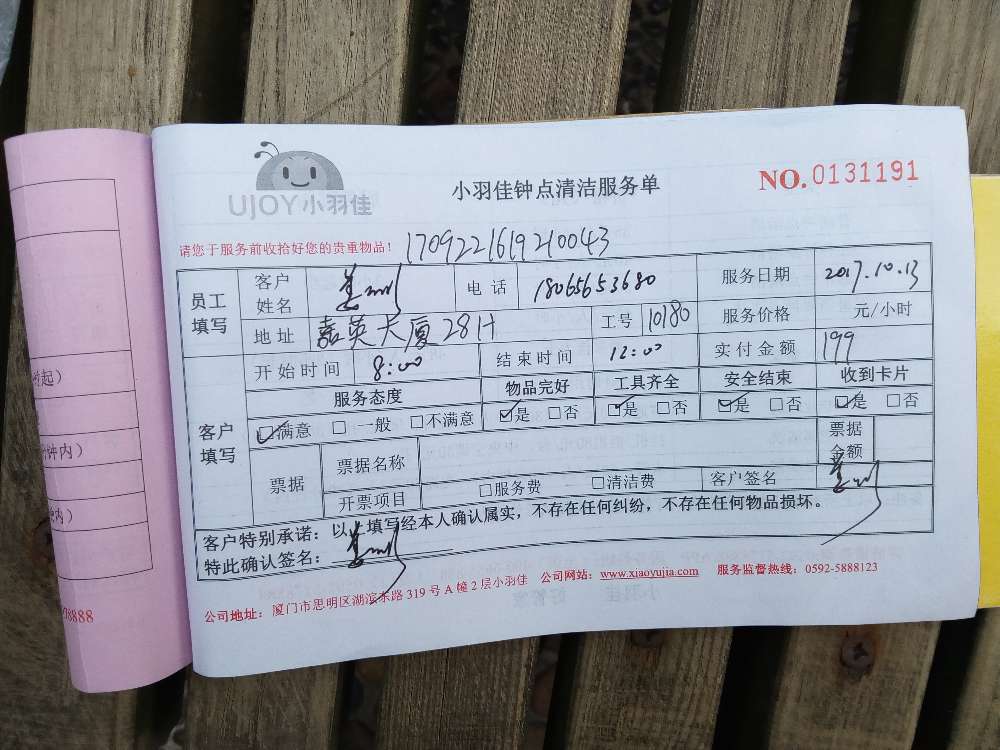 UJOY小羽佳
小羽佳钟点清洁服务单
NO.0131191
请您于服务前收拾好您的贵重物品！ 1709221619210043
员工填写 客户姓名 电话 18065653680 服务日期 2017.10.13
地址 嘉英大厦28H 工号 10180 服务价格 元/小时
开始时间 8:00 结束时间 12:00 实付金额 199
客户填写 服务态度 物品完好 工具齐全 安全结束 收到卡片
☑满意 □一般 □不满意 ☑是 □否 ☑是 □否 ☑是 □否 ☑是 □否
票据 票据名称 票据金额
开票项目 □服务费 □清洁费 客户签名
客户特别承诺：以上填写经本人确认属实，不存在任何纠纷，不存在任何物品损坏。
特此确认签名：
公司地址：厦门市思明区湖滨东路319号A幢2层小羽佳 公司网站：www.xiaoyujia.com 服务监督热线：0592-5888123
钟内）
8888